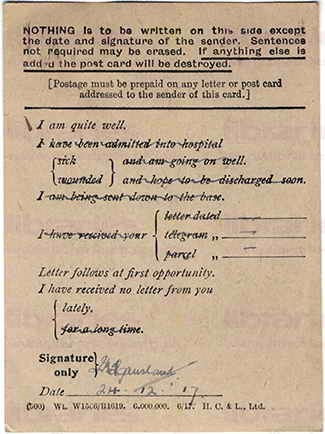 NOTHING is to be written on this side except
the date and signature of the sender. Sentences
not required may be erased. If anything else is
added the post card will be destroyed.
[Postage must be prepaid on any letter or post card
addressed to the sender of this card.]
I am quite well.
I have been admitted into hospital
sick and am going on well.
wounded and hope to be discharged soon.
I am being sent down to the base.
letter dated
I have received your telegram „
parcel „
Letter follows at first opportunity.
I have received no letter from you
lately.
for a long time.
Signature
only
Date 24 . 12 . 17.
(500) Wt. W1566/R1619. 6,000,000. 6/17. H. C. & L., Ltd.